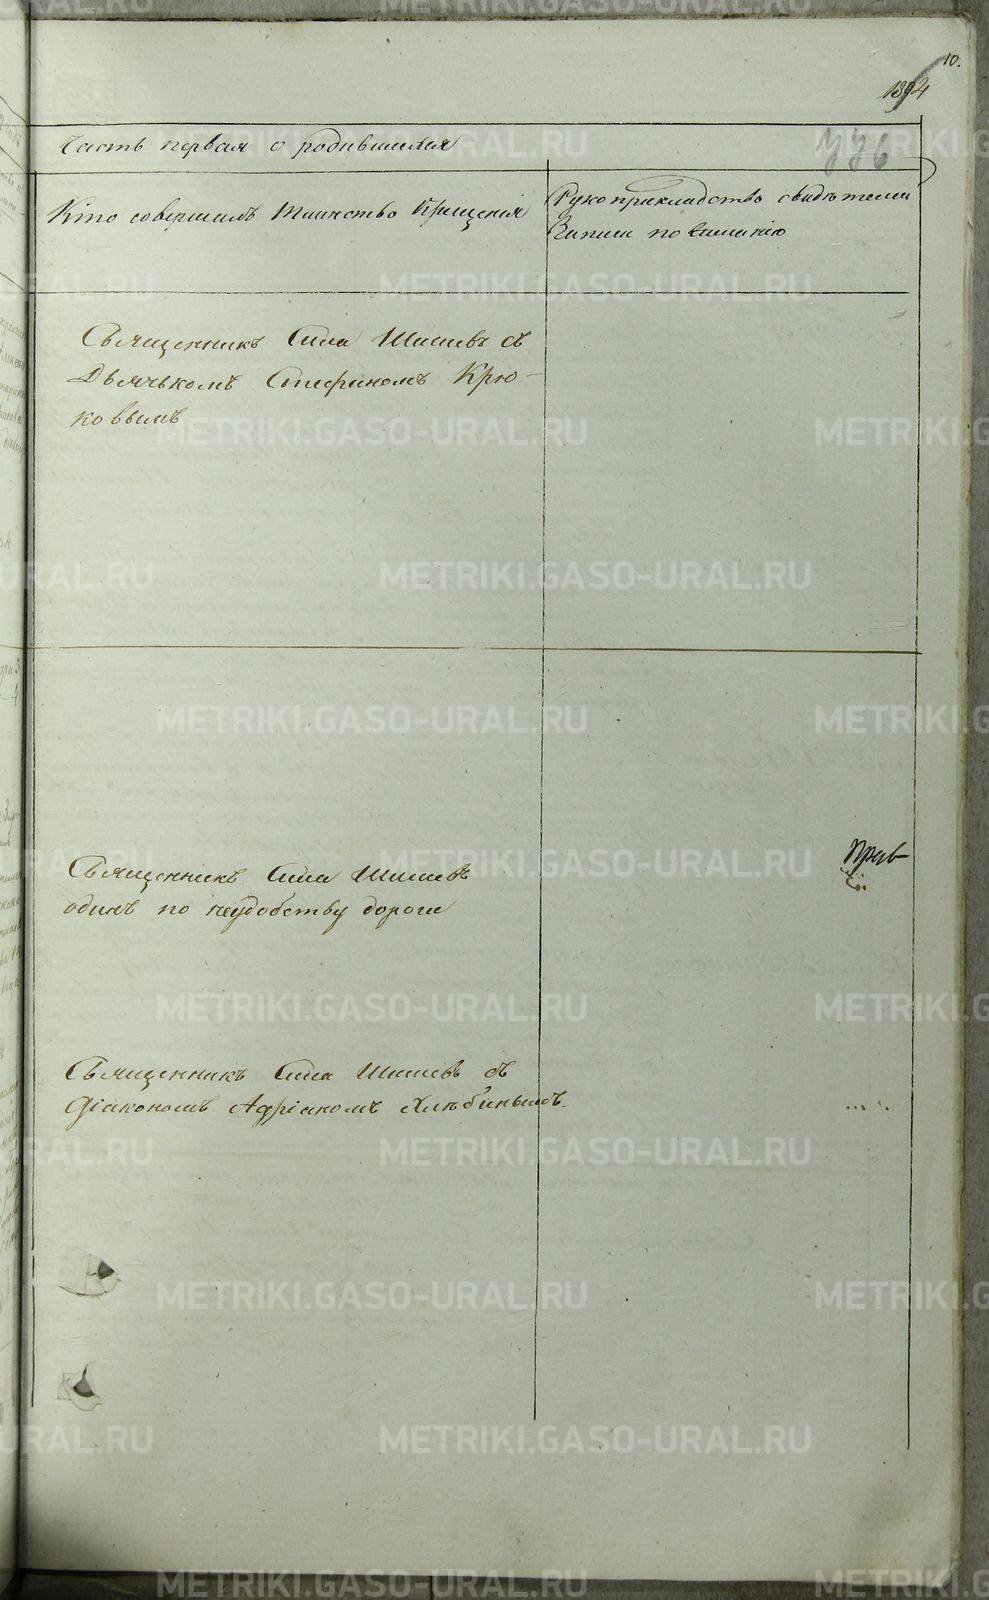 10.
1894
336
Часть первая о родившихся
Кто совершалъ таинство Крещенія
Рукоприкладство свидѣтелей
записи по желанію
Священникъ Сила Шишевъ съ
Дьячькомъ Стефаномъ Крю-
ковымъ
Священникъ Сила Шишевъ
одинъ по неудобству дороги
Священникъ Сила Шишевъ съ
Діакономъ Адріаномъ Хлѣбинымъ.
METRIKI.GASO-URAL.RU